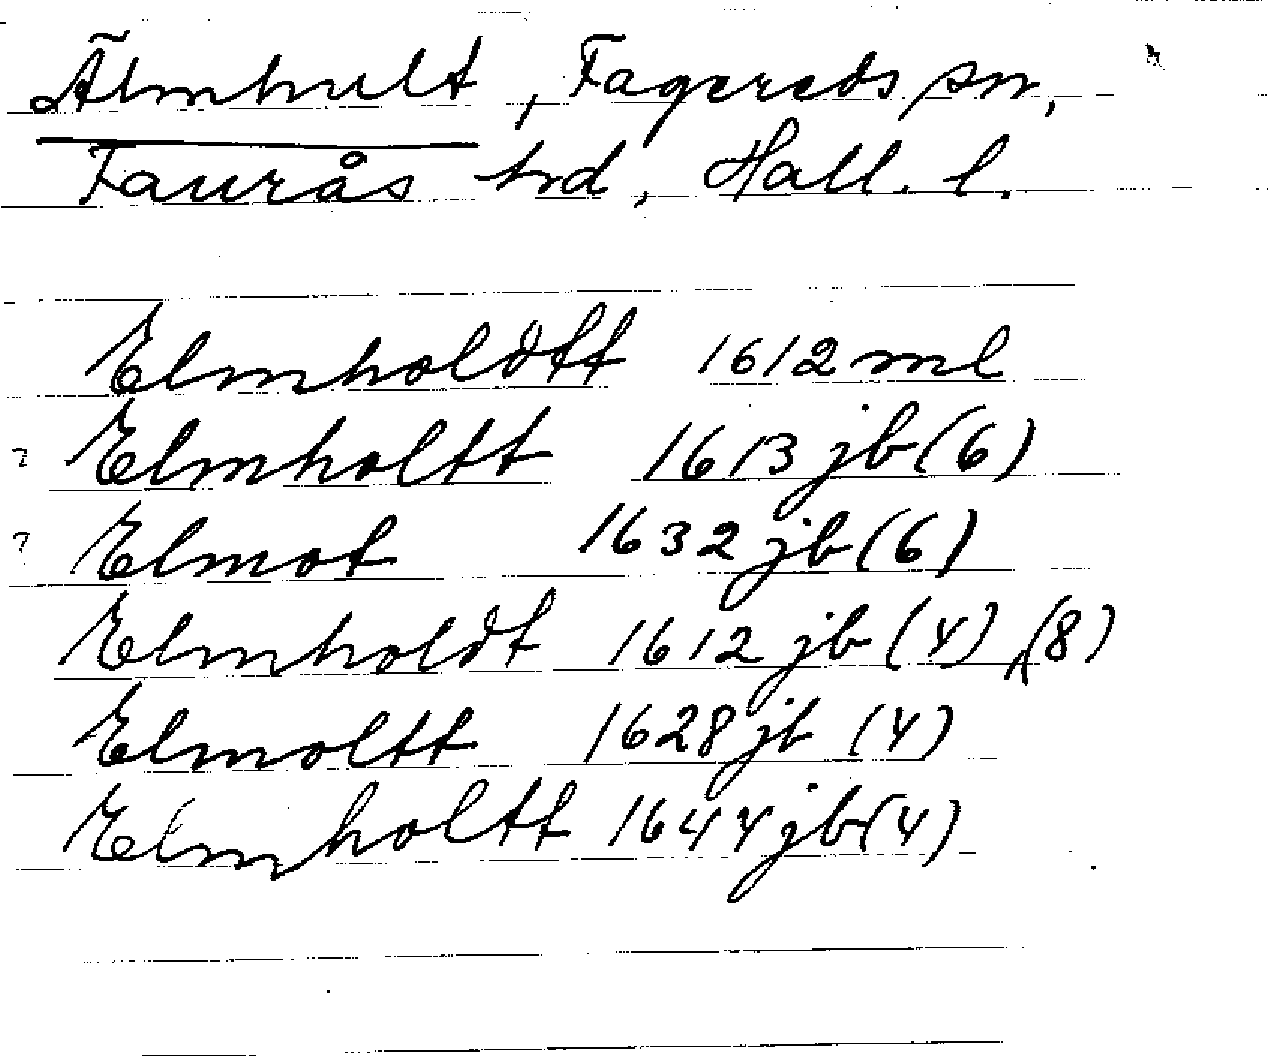 Älmhult, Fagereds sn,
Faurås hd, Hall. l.
Elmholdtt 1612 ml
? Elmholtt 1613 jb (6)
? Elmot 1632 jb (6)
Elmholdt 1612 jb (4), (8)
Elmoltt 1628 jb (4)
Elmholtt 1644 jb (4)